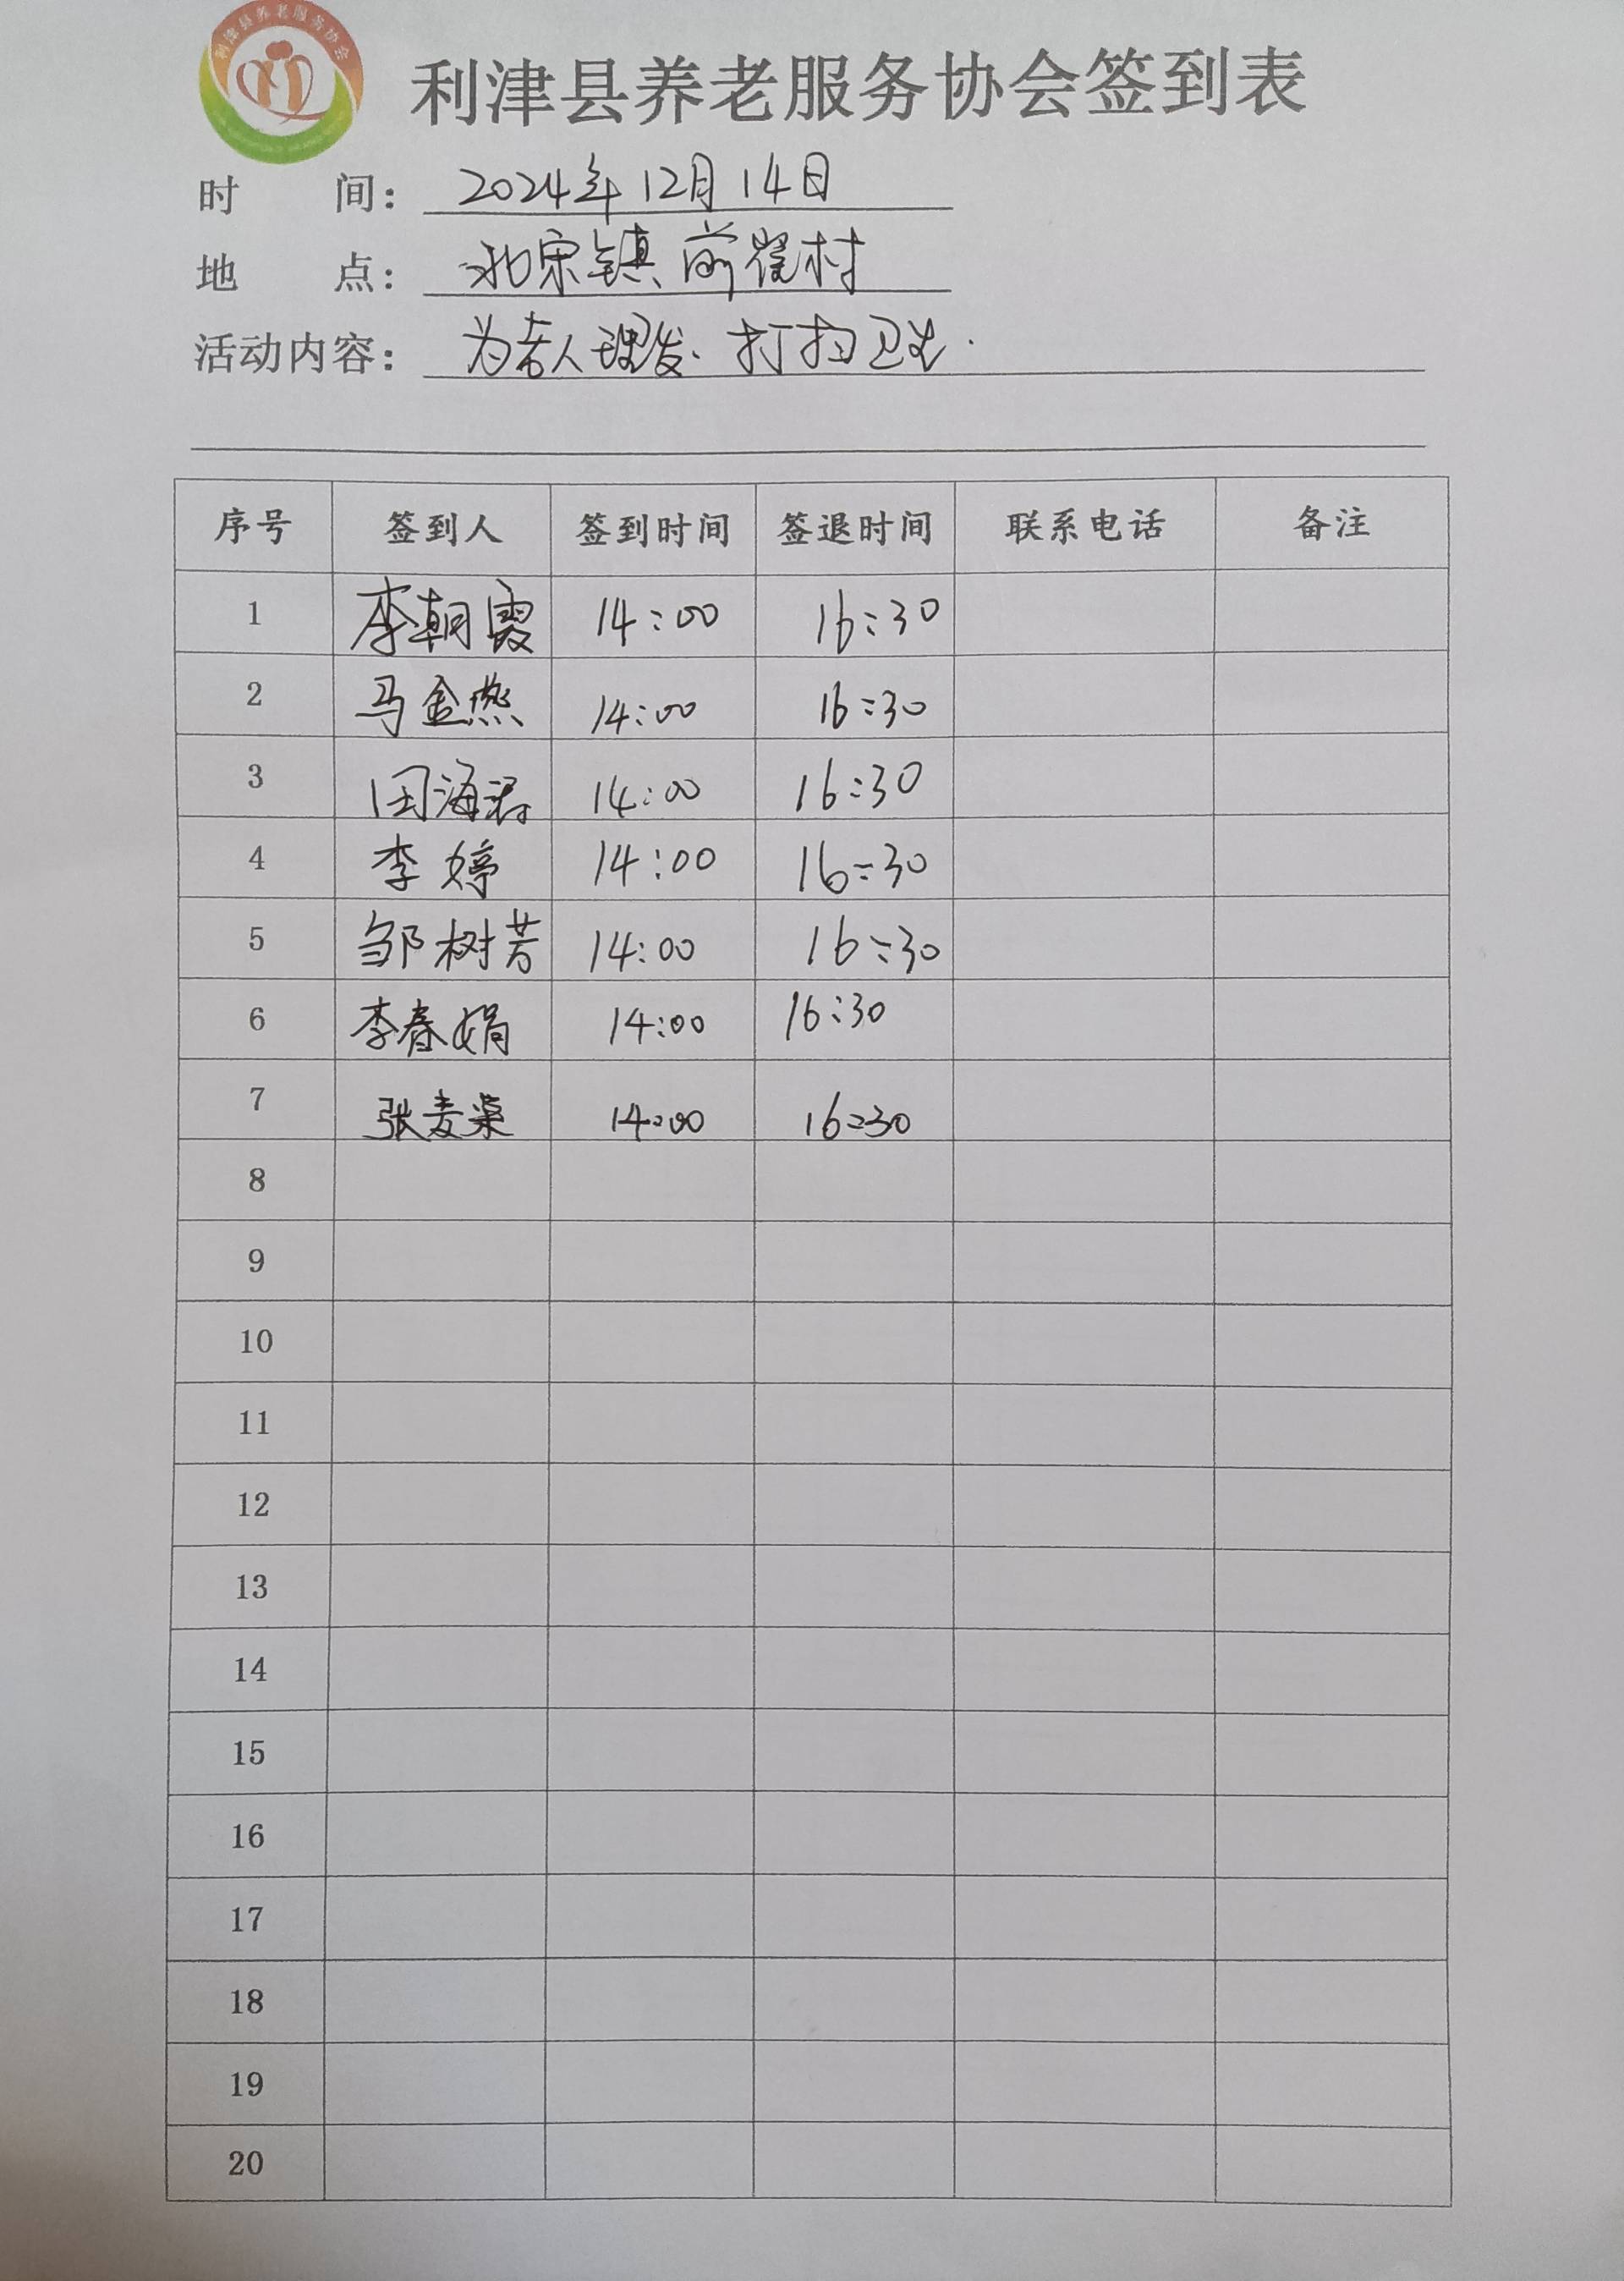 利津县养老服务协会
利津县养老服务协会签到表
时 间： 2024年12月14日
地 点： 北宋镇前翟村
活动内容： 为老人理发、打扫卫生.
序号 签到人 签到时间 签退时间 联系电话 备注
1 李朝霞 14:00 16:30
2 马金燕 14:00 16:30
3 海 14:00 16:30
4 李婷 14:00 16:30
5 邹树芳 14:00 16:30
6 李春娟 14:00 16:30
7 张麦 14:00 16:30
8
9
10
11
12
13
14
15
16
17
18
19
20